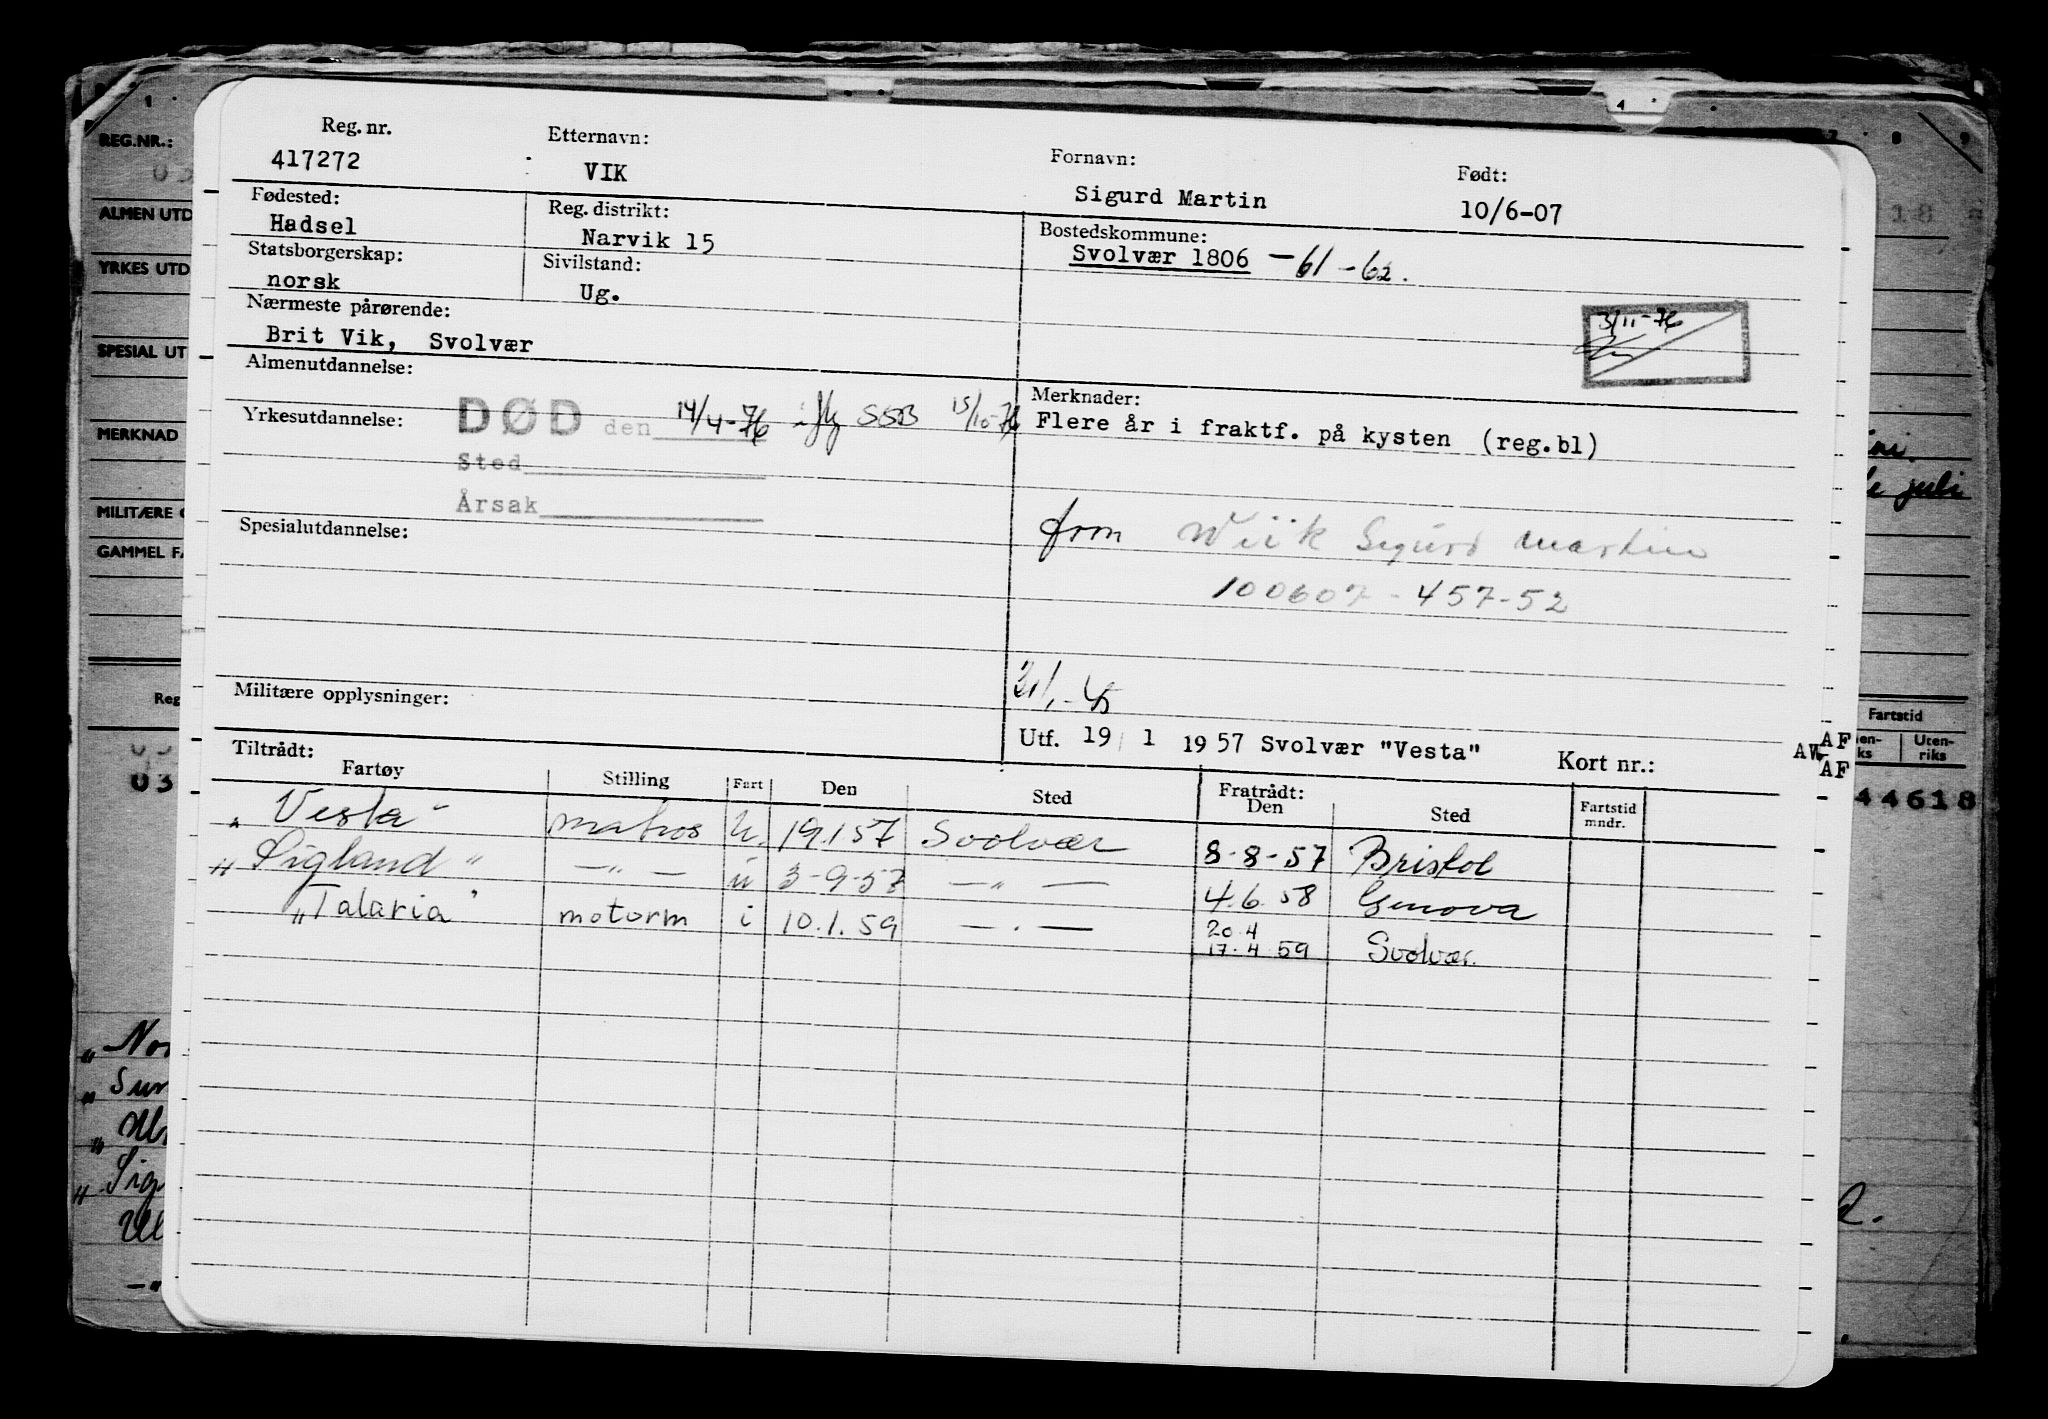 Reg. nr. Etternavn: Fornavn: Født:
417272 VIK Sigurd Martin 10/6-07
Fødested: Reg. distrikt: Bostedskommune:
Hadsel Narvik 15 Svolvær 1806 -61-62.
Statsborgerskap: Sivilstand:
norsk Ug.
Nærmeste pårørende:
Brit Vik, Svolvær
3/11-76
Almenutdannelse: Merknader:
Yrkesutdannelse: DØD den 14/4-76 iflg SSB 15/10-76 Flere år i fraktf. på kysten (reg.bl)
Sted
Årsak
Spesialutdannelse: from Wiik Sigurd Martin
100607-457-52
Militære opplysninger:
Utf. 19 1 1957 Svolvær "Vesta" Kort nr.: AW AF
AF
Tiltrådt: Fratrådt:
Fartøy Stilling Fart Den Sted Den Sted Fartstid mndr.
"Vesta" matros u. 19.1.57 Svolvær 8-8-57 Bristol
"Sigland" —"— u 3-9-57 —"— 4.6.58 Genova
"Talaria" motorm i 10.1.59 —"— 20.4
17.4.59 Svolvær.
REG.NR.:
ALMEN UTD
YRKES UTD
SPESIAL UT
MERKNAD
MILITÆRE
GAMMEL FA
Reg
03
Fartstid
Uten-
riks
44618
juli
"Nor
"Sig